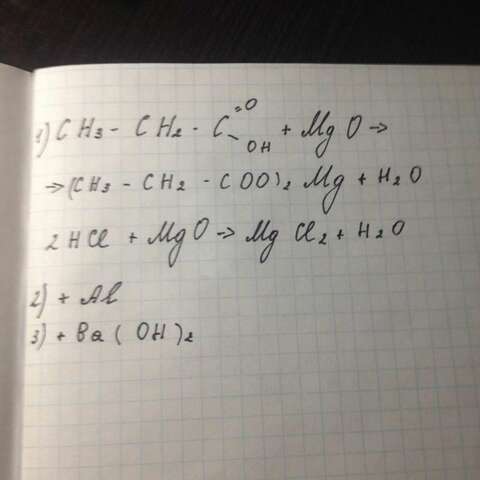 1) CH3 - CH2 - C =O - OH + MgO →
→ (CH3 - CH2 - COO)2 Mg + H2O
2HCl + MgO → MgCl2 + H2O
2) + Al
3) + Ba(OH)2